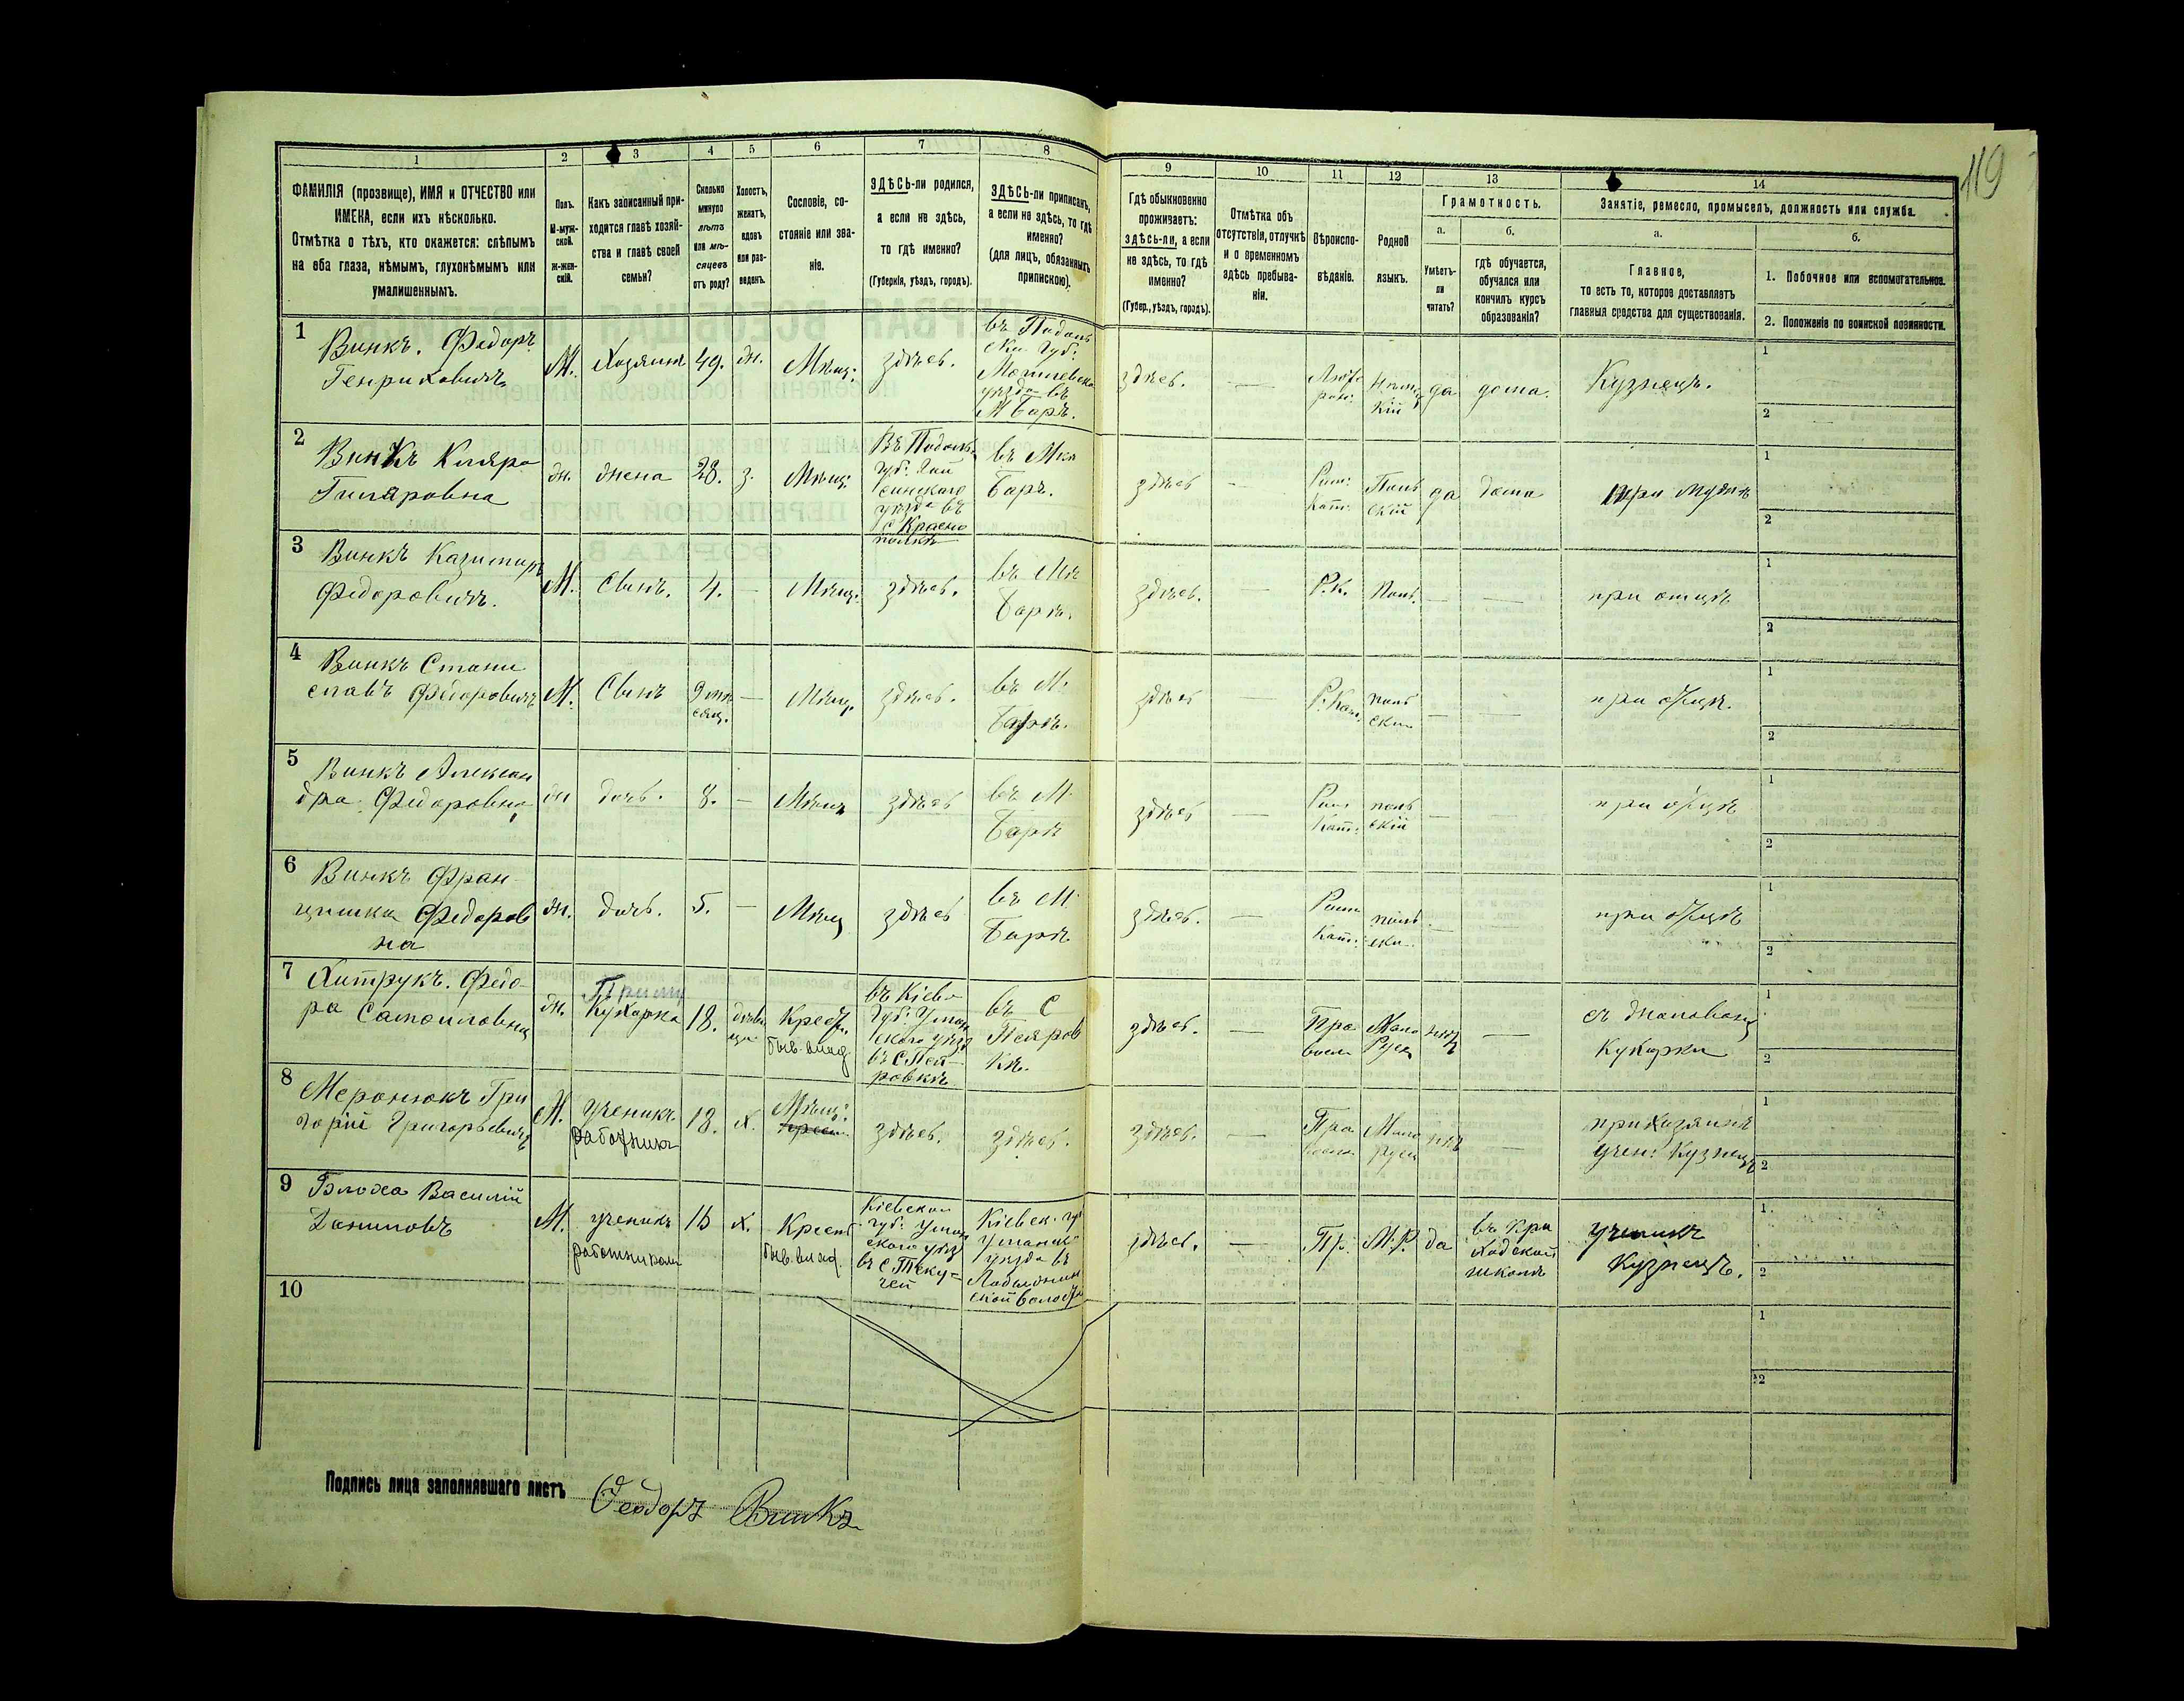 119
1
2
3
4
5
6
7
8
9
10
11
12
13
14
ФАМИЛІЯ (прозвище), ИМЯ и ОТЧЕСТВО или
ИМЕНА, если ихъ нѣсколько.
Отмѣтка о тѣхъ, кто окажется: слѣпымъ
на оба глаза, нѣмымъ, глухонѣмымъ или
умалишеннымъ.
Полъ.
М-муж-
ской.
Ж-жен-
скій.
Какъ записанный при-
ходится главѣ хозяй-
ства и главѣ своей
семьи?
Сколько
минуло
лѣтъ
или мѣ-
сяцевъ
отъ роду?
Холостъ,
женатъ,
вдовъ
или раз-
веденъ.
Сословіе, со-
стояніе или зва-
ніе.
ЗДѢСЬ-ли родился,
а если не здѣсь,
то гдѣ именно?
(Губернія, уѣздъ, городъ).
ЗДѢСЬ-ли приписанъ,
а если не здѣсь, то гдѣ
именно?
(для лицъ, обязанныхъ
припискою).
Гдѣ обыкновенно
проживаетъ:
здѣсь-ли, а если
не здѣсь, то гдѣ
именно?
(Губер., уѣздъ, городъ).
Отмѣтка объ
отсутствіи, отлучкѣ
и о временномъ
здѣсь пребыва-
ніи.
Вѣроиспо-
вѣданіе.
Родной
языкъ.
Грамотность.
а.
Умѣетъ-
ли
читать?
б.
гдѣ обучается,
обучался или
кончилъ курсъ
образованія?
Занятіе, ремесло, промыселъ, должность или служба.
а.
Главное,
то есть то, которое доставляетъ
главныя средства для существованія.
б.
1. Побочное или вспомогательное.
2. Положеніе по воинской повинности.
1
Винкъ. Федоръ
Генриховичъ
М.
Хозяинъ
49.
ж.
Мѣщ:
здѣсь.
въ Подоль
ской Губ:
Могилевска
уѣзда въ
М Баръ.
здѣсь.
—
Люте
ран:
Нѣмец
кій
да
дома.
Кузнецъ.
1
2
2
Винкъ Кляра
Гиляровна
ж.
жена
28.
з.
Мѣщ:
Въ Подоль.
Губ: Гай
синскаго
уѣзда въ
с Красно
полкѣ
въ Мѣ
Баръ.
здѣсь
—
Рим:
Кат:
Поль
скій
да
дома
при мужѣ
1
2
3
Винкъ Казимиръ
Федоровичъ.
М.
Сынъ.
4.
—
Мѣщ.
здѣсь.
въ Мѣ
Барѣ.
здѣсь.
—
Р.К.
Поль.
—
—
при отцѣ
1
2
4
Винкъ Стани
славъ Федоровичъ
М.
Сынъ
9 мѣ
сяц.
—
Мѣщ.
здѣсь.
въ М.
Барѣ.
здѣсь
Р.Кат.
поль
ски
—
—
при отцѣ.
1
2
5
Винкъ Алексан
дра Федоровна
ж
дочь.
8.
—
Мѣщ
здѣсь
въ М
Барѣ
здѣсь
—
Рим
Кат:
поль
скій
—
—
при отцѣ
1
2
6
Винкъ Фран
цишка Федоров
на
ж.
дочь.
5.
—
Мѣщ
здѣсь
въ М
Барѣ
здѣсь.
—
Рим
Кат:
поль
ски.
—
—
при отцѣ
1
2
7
Хитрукъ. Федо
ра Самоиловна
ж.
Кухарка
18.
дѣви
ца
Крест.
быв. влад
въ Кіев
Губ: Уман
скаго уѣзд
въ С Пея
ровкѣ
въ С
Пеяров
кѣ.
здѣсь.
—
Пра
восл
Мало
Русс
нѣт
—
съ жалованя
Кухарки
1
2
8
Меронюкъ Гри
горій Григорьевичъ
М.
ученикъ
работникъ
18.
х.
Мѣщ:
здѣсь.
здѣсь.
здѣсь.
—
Пра
восл
Мало
русс
нѣт
—
при хозяинѣ
учен: Кузнецъ
1
2
9
Блоха Василій
Даниловъ
М.
ученикъ
работникъ
15
х.
Крест
быв. влад.
Кіевской
губ: Уман
скаго уѣзд
въ С Теку=
чей
Кіевск. гу
Уманск
уѣзда въ
ской волост
здѣсь.
—
Пр.
М.Р.
да
въ При
ходской
школѣ
ученикъ
Кузнецъ.
1
2
10
1
2
Подпись лица заполнявшаго листъ
Ѳеодоръ Винкъ